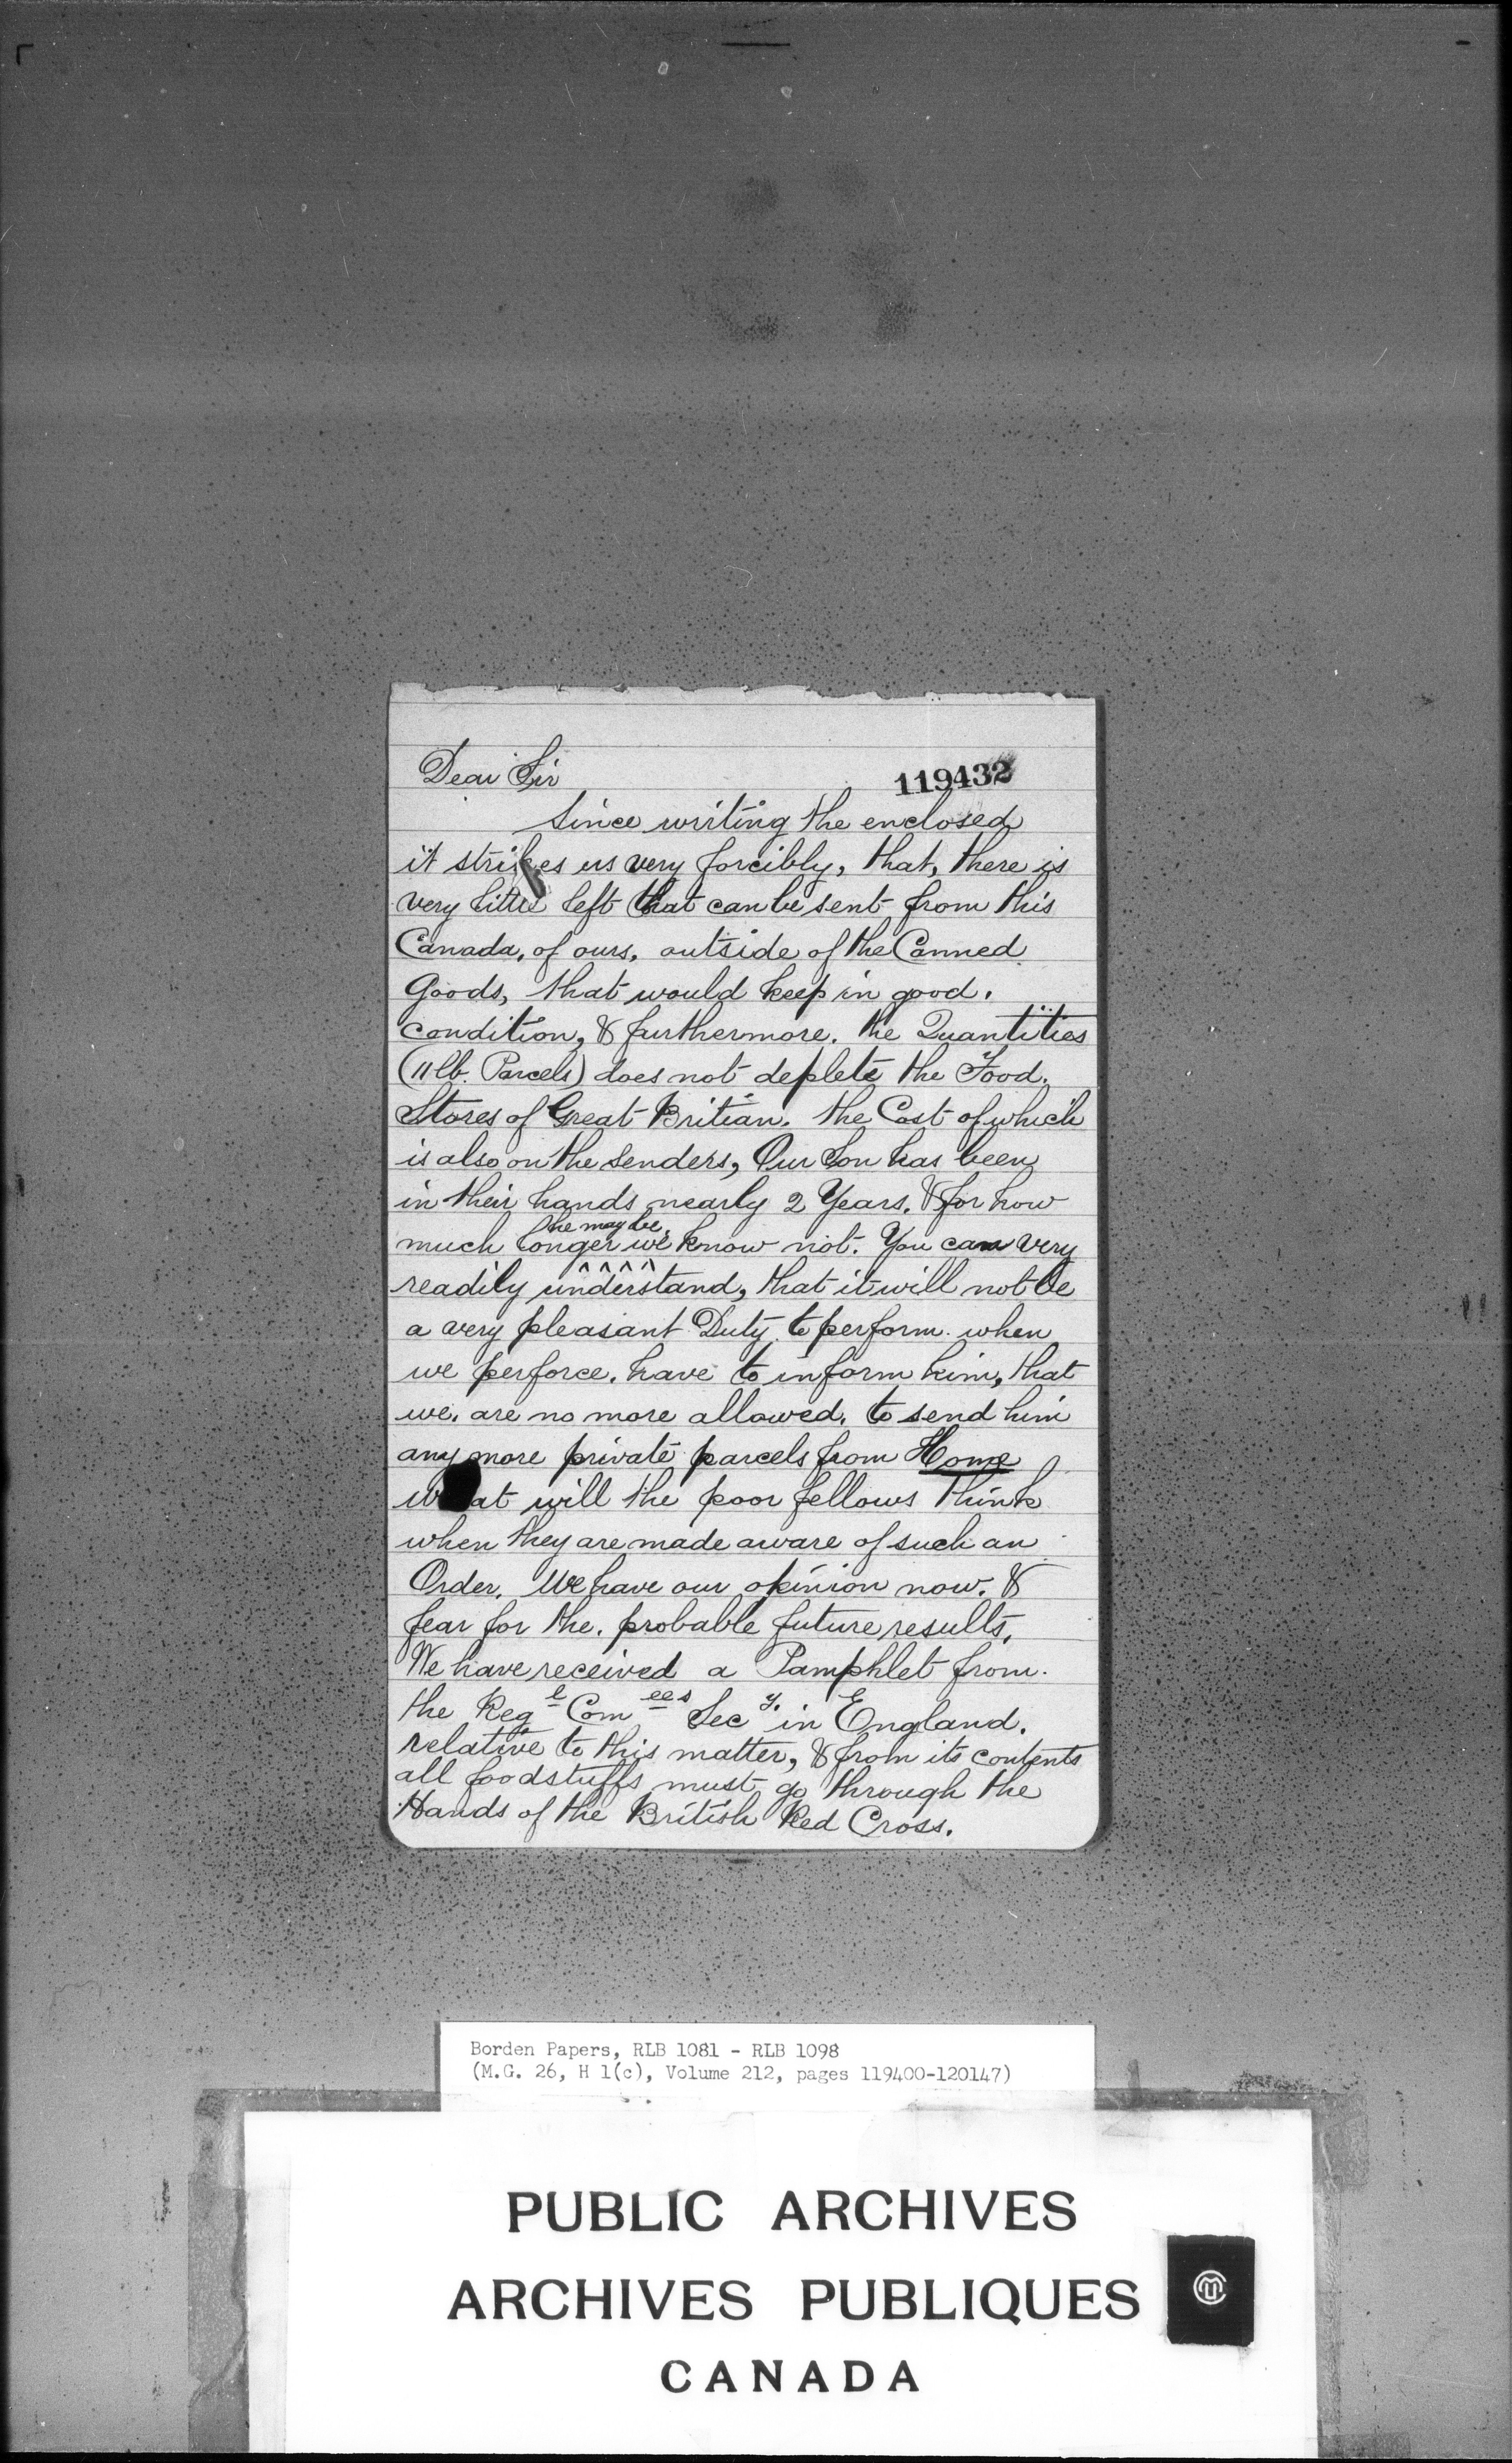 Dear Sir
119432
Since writing the enclosed
it strikes us very forcibly, that, there is
very little left that can be sent from this
Canada, of ours, outside of the Canned
Goods, that would keep in good.
condition, & furthermore. the Quantities
(11 lb. Parcels) does not deplete the Food.
Stores of Great Britian. the Cost of which
is also on the senders, Our Son has been
in their hands nearly 2 Years. & for how
he may be.
much longer we know not. You can very
readily understand, that it will not be
a very pleasant Duty to perform. when
we perforce. have to inform him, that
we. are no more allowed. to send him
any more private parcels from Home
what will the poor fellows think
when they are made aware of such an
Order. We have our opinion now. &
fear for the. probable future results.
We have received a Pamphlet from.
the Regtl Comees Secy. in England.
relative to this matter, & from its contents
all foodstuffs must go through the
Hands of the British Red Cross.
Borden Papers, RLB 1081 - RLB 1098
(M.G. 26, H 1(c), Volume 212, pages 119400-120147)
PUBLIC ARCHIVES
ARCHIVES PUBLIQUES
CANADA